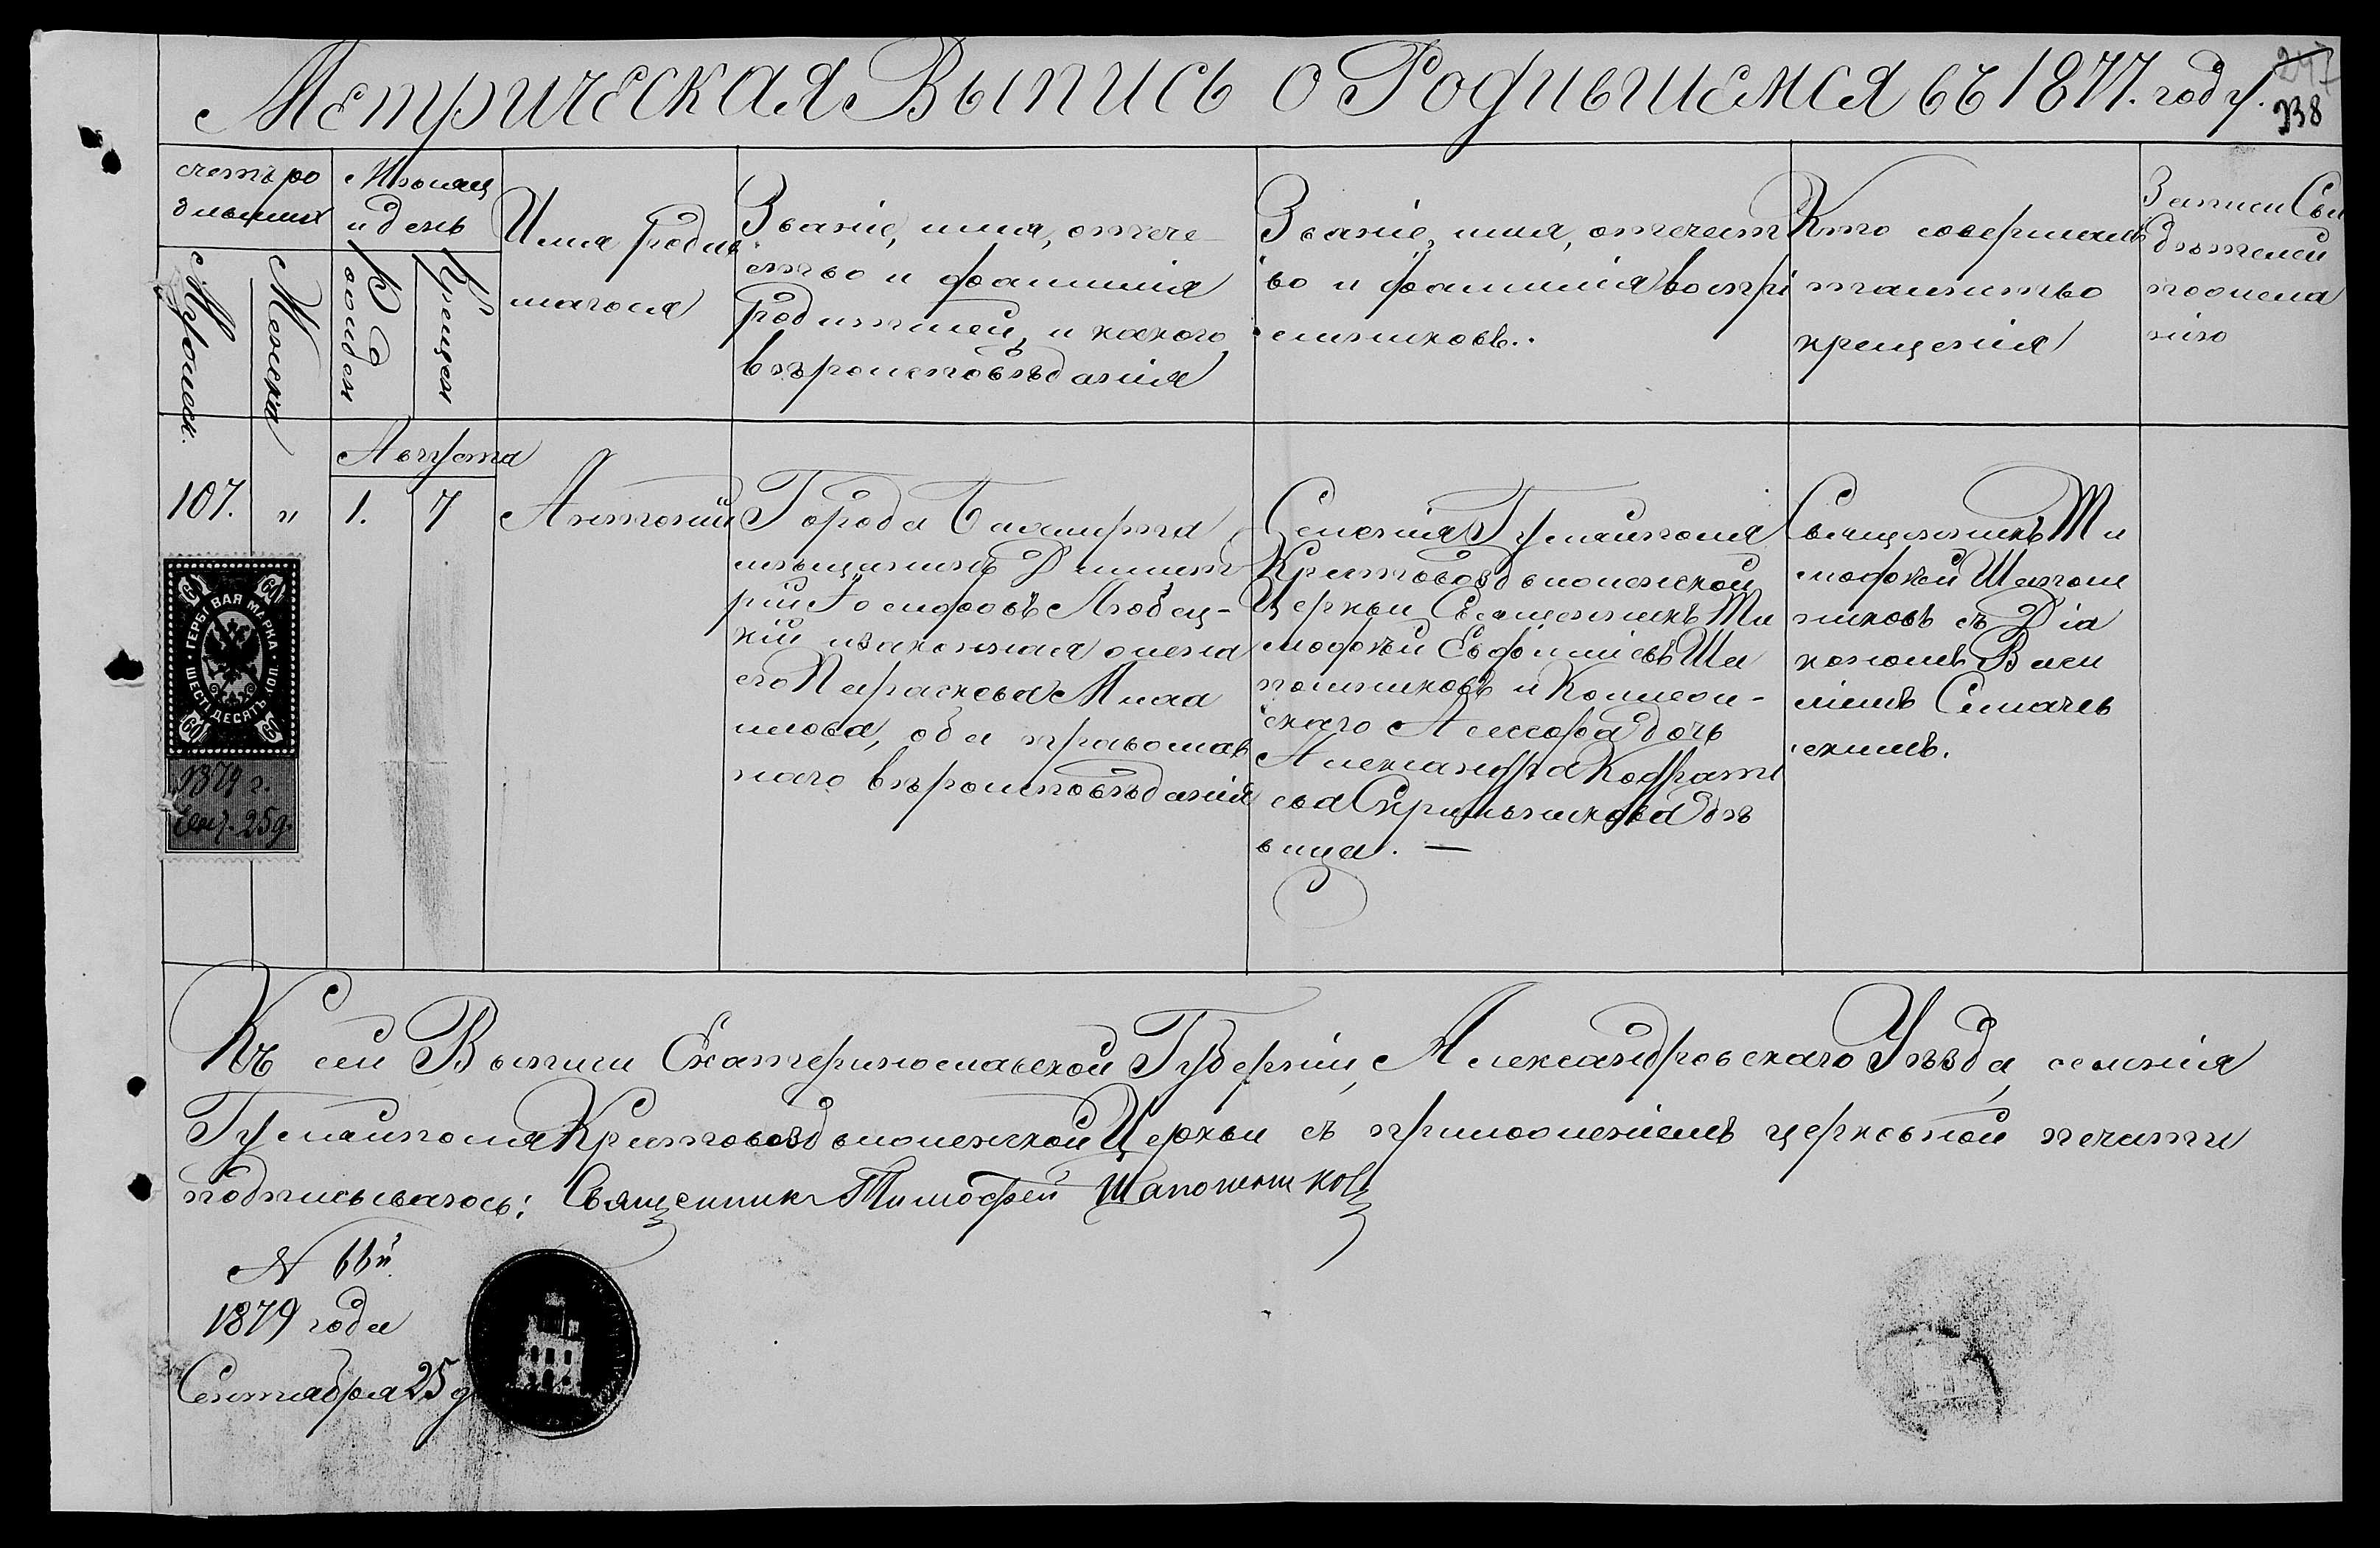 Метрическая Выпись о Родившемся въ 1877. году.
238
счетъ ро
дившихъ
Мѣсяц
и день
Мужеск.
Женска
Рожден
Крещен
Имя родив
шагося
Званіе, имя, отче-
ство и фамилія
родителей, и какого
вѣроисповѣданія
Званіе, имя, отчест
во и фамилія воспрі
емниковъ.
Кто совершалъ
таинство
крещенія
Записи Сви
дѣтелей
по желанію
Августа
107.
"
1.
7
Антоній
Города
мѣщанинъ Димит
рій Іосифовъ Любец-
кій и законная жена
его Параскева Миха
илова, оба православ
наго вѣроисповѣданія
Селенія Гуляйполя
Крестовоздвиженской
Церкви Священникъ Ти
мофѣй Евфиміевъ Ша
пошниковъ и Коллеж-
скаго Ассесора дочь
Александра Кодрать
ева Скрыльникова дѣ
вица. —
Священникъ Ти
мофѣй Шапош
никовъ съ Діа
кономъ Васи
ліемъ
ГЕРБОВАЯ МАРКА
ШЕСТЬДЕСЯТЪ КОП.
60 60
60 60
1879 г.
Сент. 25 д.
Къ сей Выписи Екатеринославской Губерніи, Александровскаго Уѣзда, селенія
Гуляйполя Крестовоздвиженской Церкви съ приложеніемъ церковной печати
подписываюсь: Священник Тимофей Шапошников
N 66й
1879 года
Сентября 25 д